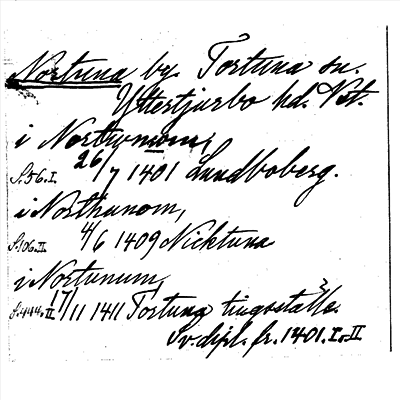 Nortuna by. Tortuna sn.
Yttertjurbo hd. Vst.
i Nortunom,
S.56.I. 26/7 1401 Lundboberg.
i Northunom,
S.106.II. 4/6 1409 Nicktuna
i Nortunum,
S.444.II. 17/11 1411 Tortuna tingsställe.
Sv. dipl. fr. 1401. I. o. II